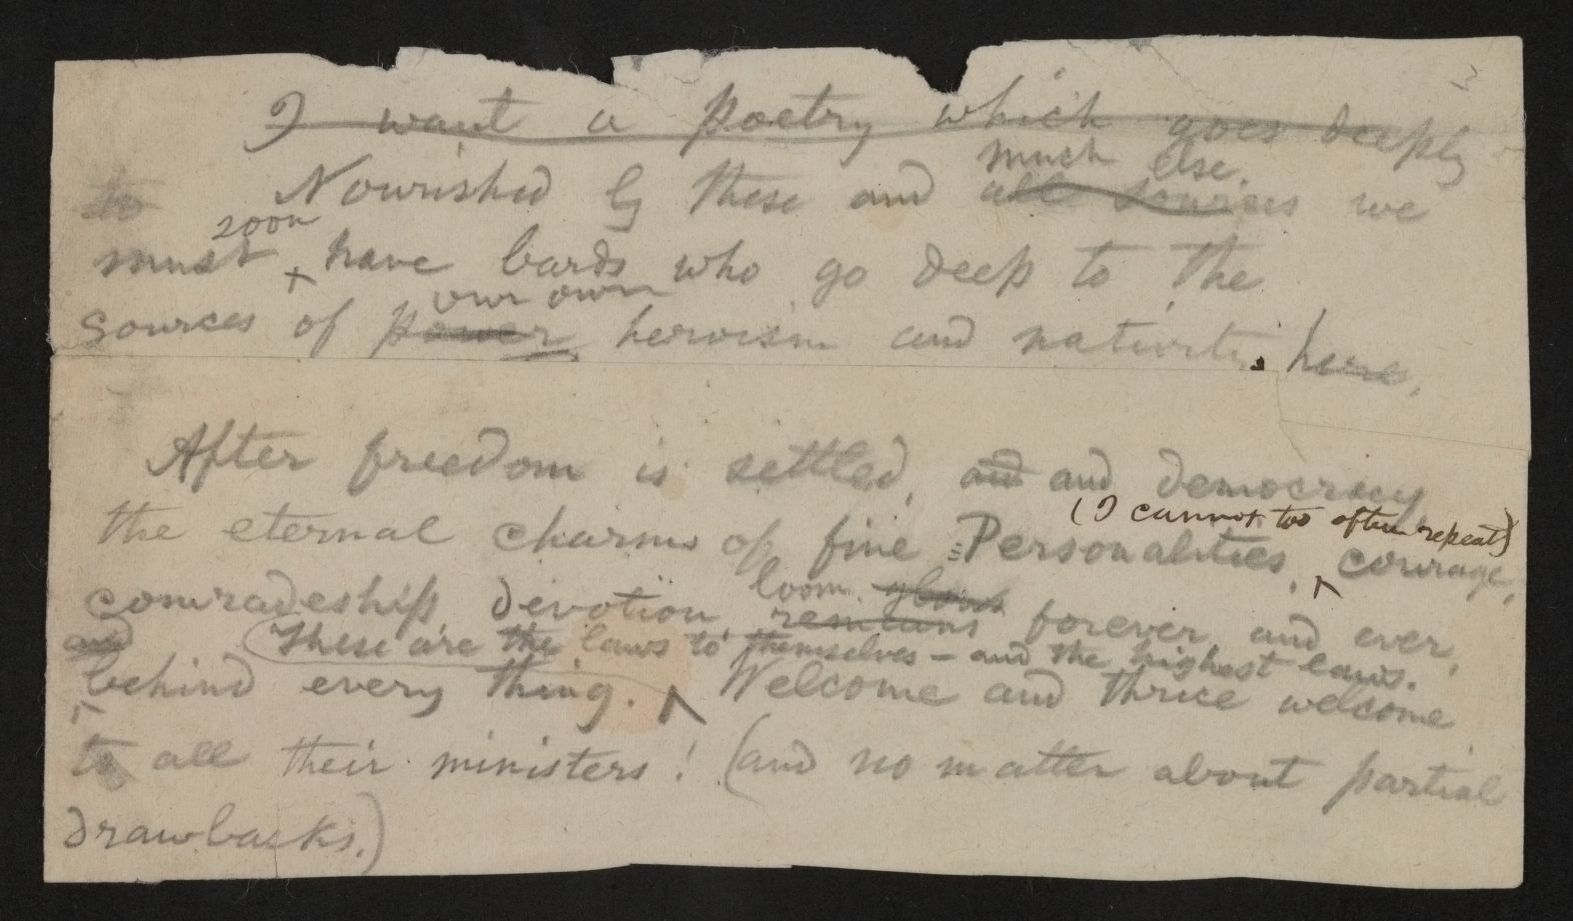 I want a poetry which goes deeply
much else
to Nourished by these and all sources we
soon
must have bards who go deep to the
our own
sources of power heroism and nativity. here,
After freedom is settled, and and democracy
(I cannot too often repeat)
the eternal charms of fine Personalities, courage,
loom glows
comradeship, devotion remains forever and ever,
and These are the laws to themselves – and the highest laws.
behind every thing. Welcome and thrice welcome
to all their ministers! (and no matter about partial
drawbacks.)